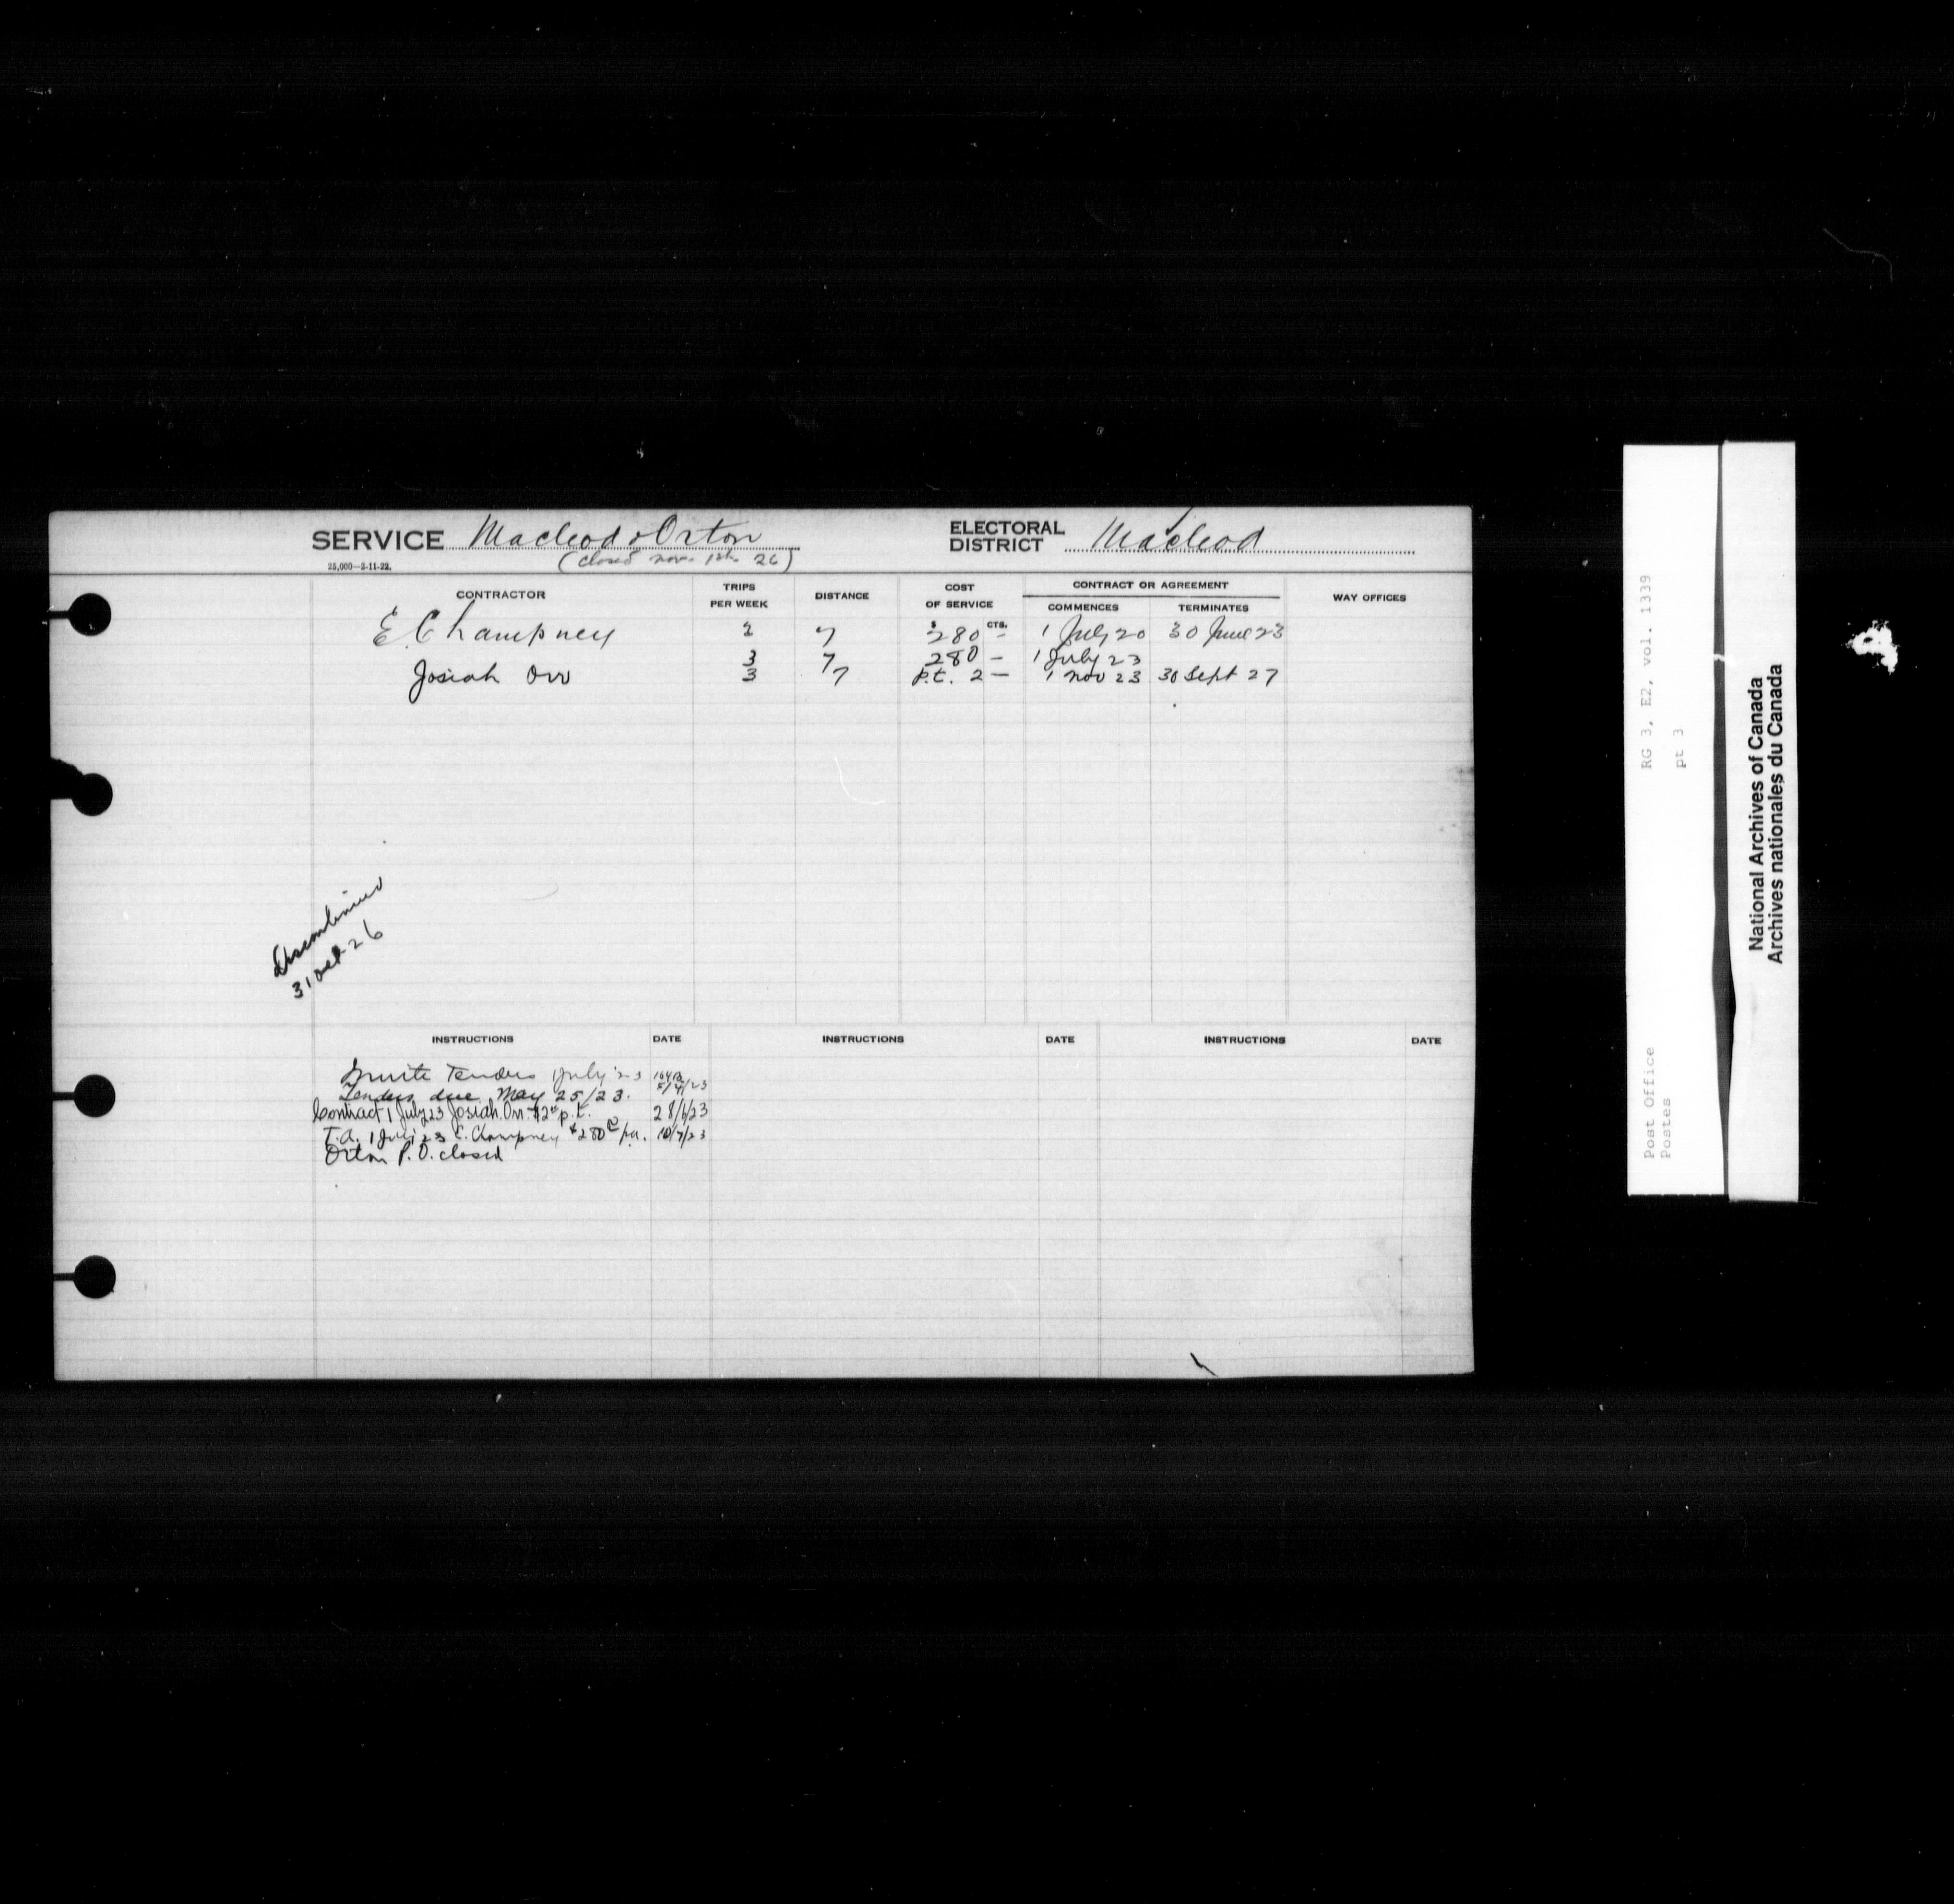 SERVICE Macleod & Orton
ELECTORAL DISTRICT Macleod
25,000—2-11-22.
(closed nov. 1st 26)
CONTRACTOR TRIPS PER WEEK DISTANCE COST OF SERVICE CONTRACT OR AGREEMENT COMMENCES TERMINATES WAY OFFICES
$ CTS.
E. Champney 2 7 280 - 1 July 20 30 June 23
3 7 280 - 1 July 23
Josiah Orr 3 7 P.t. 2 - 1 Nov 23 30 Sept 27
Discontinued
31 Oct 26
INSTRUCTIONS DATE INSTRUCTIONS DATE INSTRUCTIONS DATE
Invite Tenders 1 July '23 5/4/23
Tenders due May 25/23.
Contract 1 July 23 Josiah Orr $2 p.t. 28/6/23
T.A. 1 July 23 E. Champney $280 p.a. 10/7/23
Orton P.O. closed
RG 3, E2, vol. 1339
pt 3
Post Office
Postes
National Archives of Canada
Archives nationales du Canada